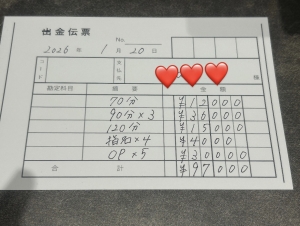 出金伝票
No.
2026年 1月 20日
コード
支払先
様
勘定科目 摘要 金額
70分 ¥12000
90分×3 ¥36000
120分 ¥15000
指名×4 ¥4000
OP×5 ¥30000
合計 ¥97000